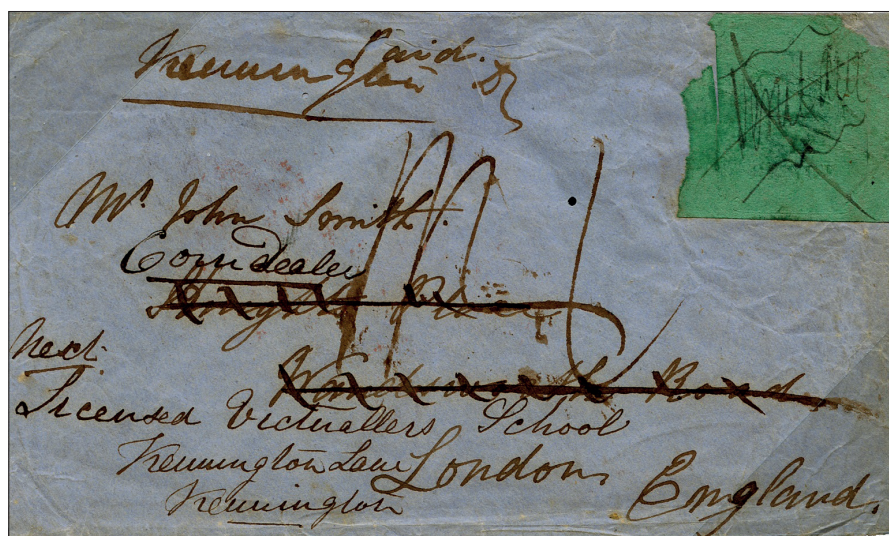 Paid.
Kennington
Mr. John Smith.
Corn Dealer
Place
Wandsworth Road
Next
Licensed Victuallers School
Kennington Lane London
Kennington England.